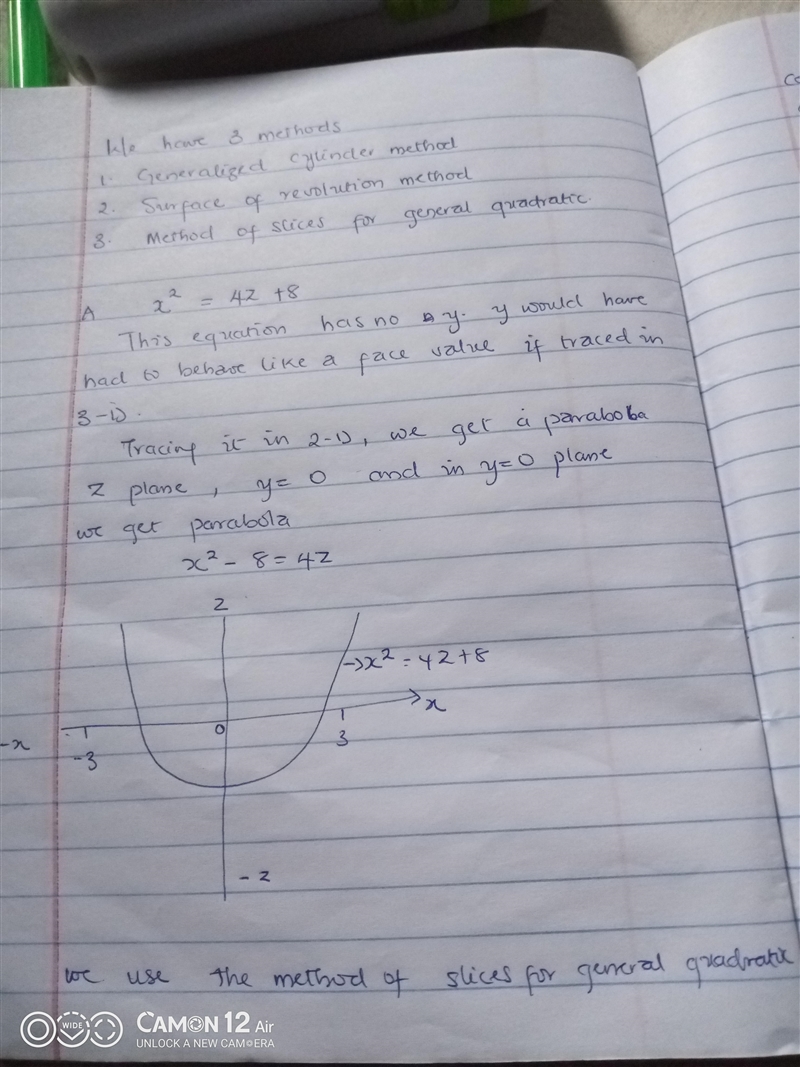 We have 3 methods
1. Generalized cylinder method
2. Surface of revolution method
3. Method of slices for general quadratic.
A x² = 4z + 8
This equation has no y. y would have
had to behave like a face value if traced in
3-D.
Tracing it in 2-D, we get a parabola
z plane, y = 0 and in y=0 plane
we get parabola
x² - 8 = 4z
z
→x² = 4z+8
x
-x
0
-3
3
- z
we use the method of slices for general quadratic
WIDE
CAMON 12 Air
UNLOCK A NEW CAMERA